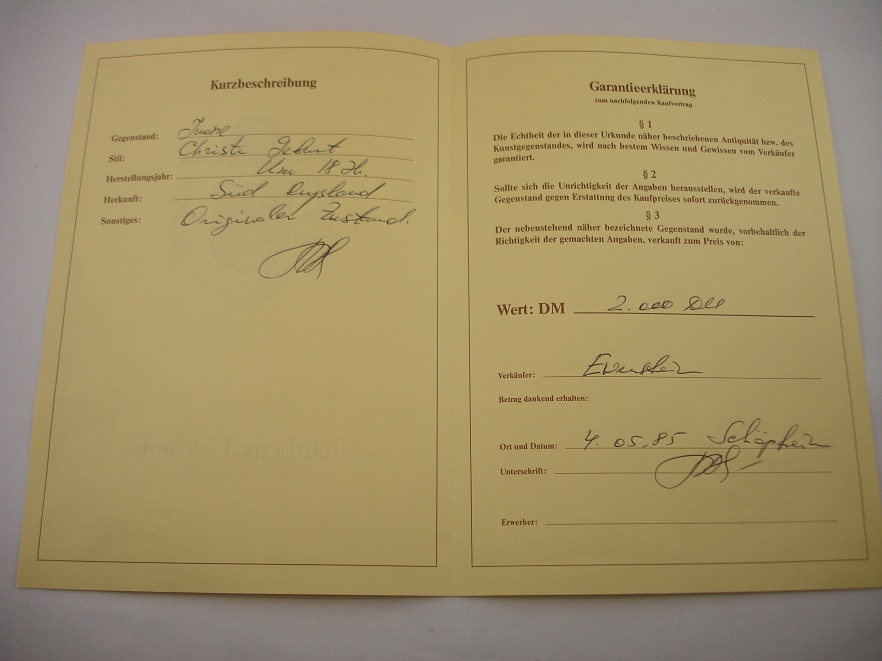 Kurzbeschreibung
Gegenstand: Ikone
Stil: Christi Geburt
Herstellungsjahr: Um 18 Jh.
Herkunft: Süd
Sonstiges: Originaler Zustand.
Echtheits-Urkunde
Garantieerklärung
zum nachfolgenden Kaufvertrag
§ 1
Die Echtheit der in dieser Urkunde näher beschriebenen Antiquität bzw. des
Kunstgegenstandes, wird nach bestem Wissen und Gewissen vom Verkäufer
garantiert.
§ 2
Sollte sich die Unrichtigkeit der Angaben herausstellen, wird der verkaufte
Gegenstand gegen Erstattung des Kaufpreises sofort zurückgenommen.
§ 3
Der nebenstehend näher bezeichnete Gegenstand wurde, vorbehaltlich der
Richtigkeit der gemachten Angaben, verkauft zum Preis von:
Wert: DM 2.000 DM
Verkäufer:
Betrag dankend erhalten:
Ort und Datum: 4.05.85
Unterschrift:
Erwerber: